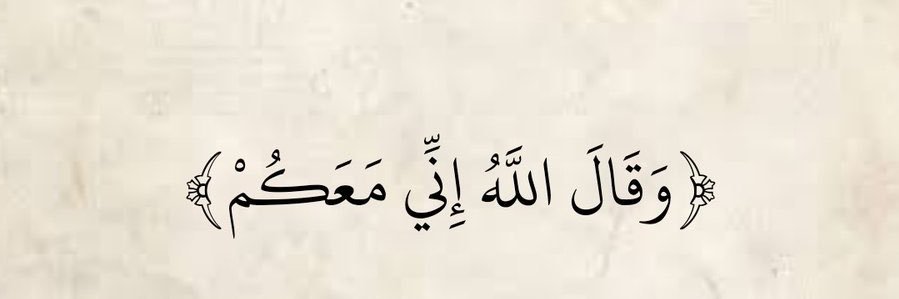 ﴿وَقَالَ اللَّهُ إِنِّي مَعَكُمْ﴾